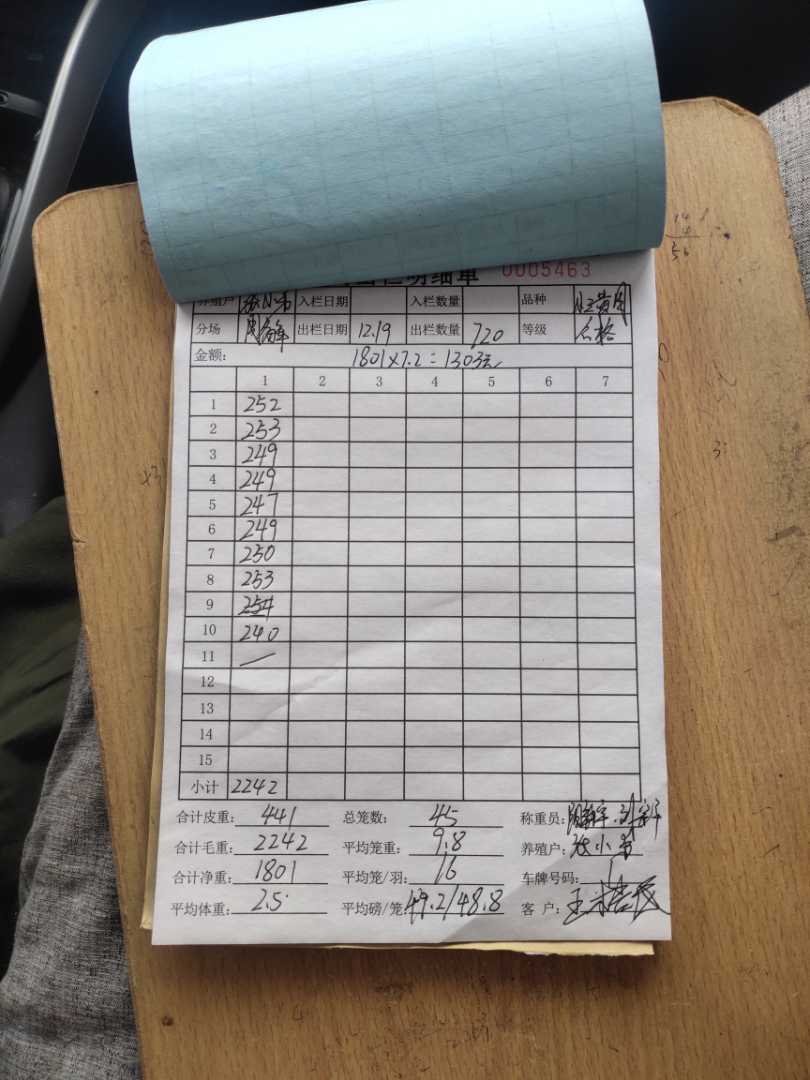 出栏明细单 0005463
养殖户 张小韦 入栏日期 入栏数量 品种
分场 出栏日期 12.19 出栏数量 720 等级 合格
金额: 1801×7.2=1303元
1 2 3 4 5 6 7
1 252
2 253
3 249
4 249
5 247
6 249
7 250
8 253
9 254
10 240
11 —
12
13
14
15
小计 2242
合计皮重: 441 总笼数: 45 称重员:
合计毛重: 2242 平均笼重: 9.8 养殖户: 张小
合计净重: 1801 平均笼/羽: 16 车牌号码:
平均体重: 2.5 平均磅/笼: 49.2/48.8 客 户: 王